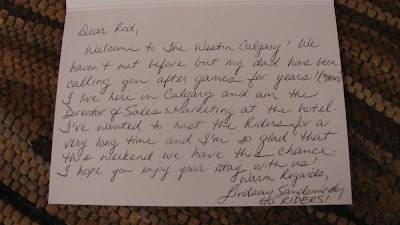 Dear Rod,
Welcome to The Westin Calgary! We
haven't met before but my dad has been
calling you after games for years! (Stan)
I live here in Calgary and am the
Director of Sales & Marketing at the hotel.
I've wanted to host the Riders for a
very long time and I'm so glad that
this weekend we have this chance.
I hope you enjoy your stay with us!
Warm Regards,
Lindsay
GO RIDERS!